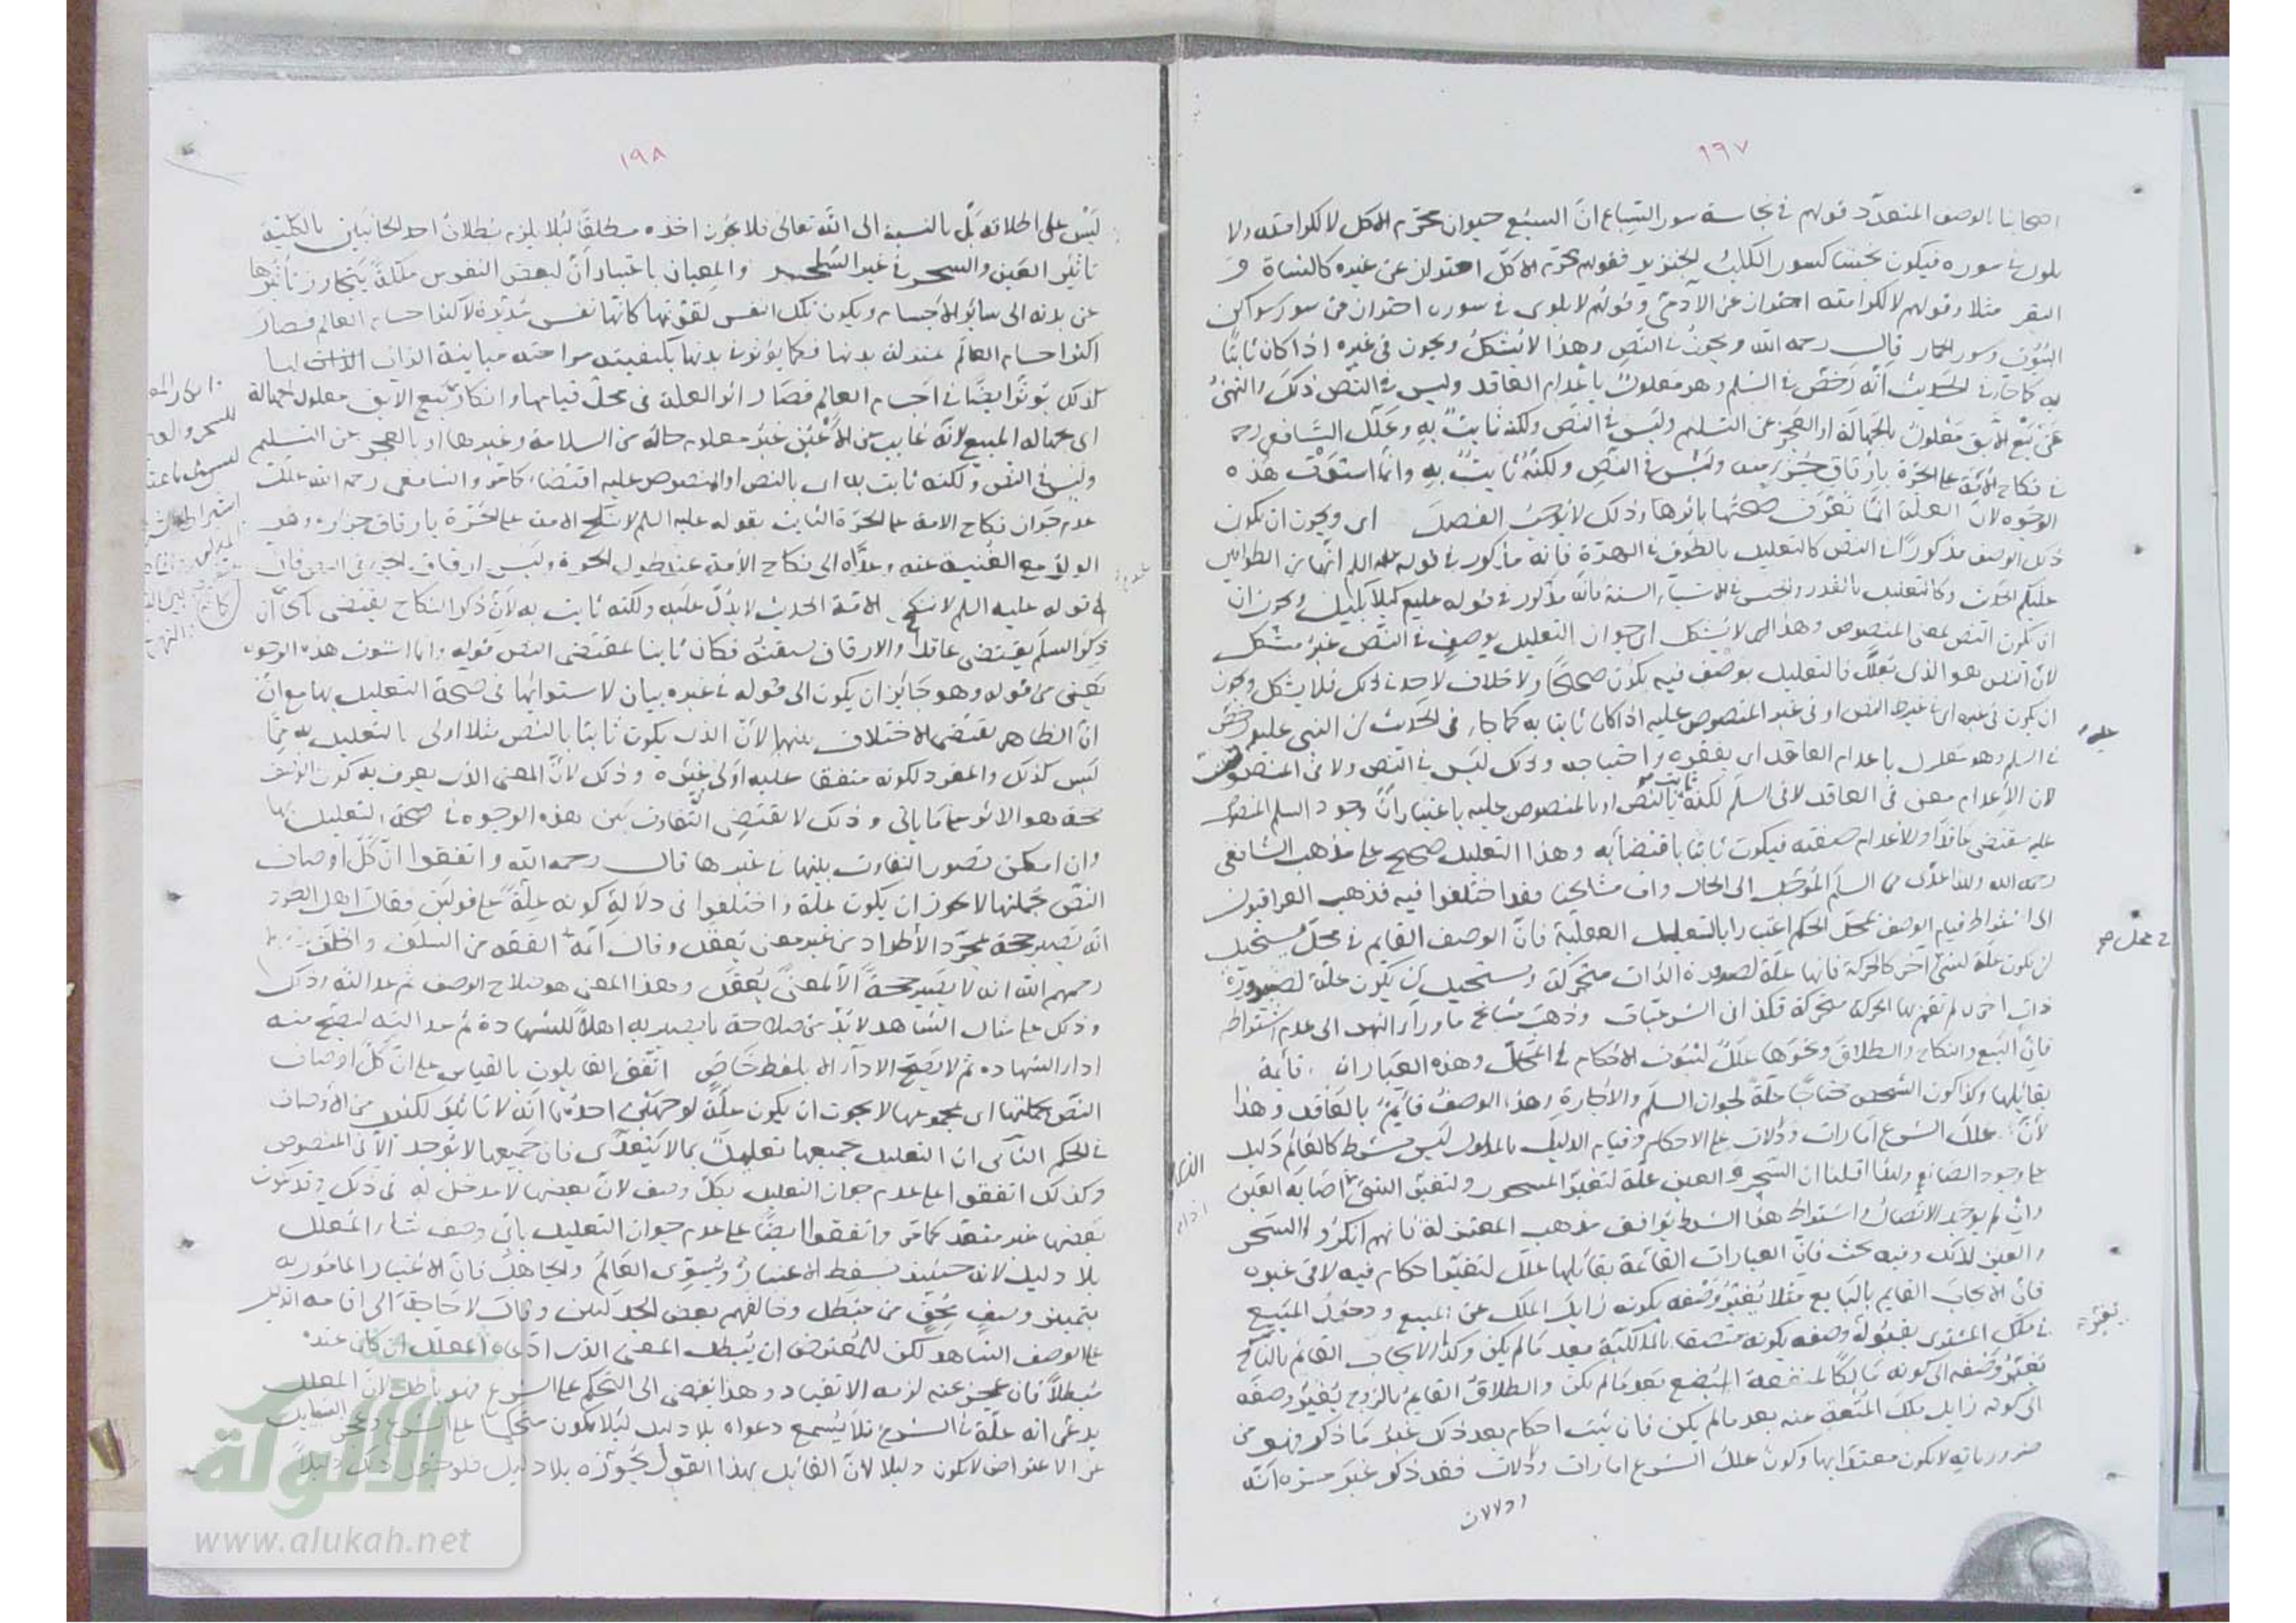 ١٩٧
اصحابنا بالوصف المتعدد قولهم في نجاسة سور السباع ان السبع حيوان محرم الاكل لا لكرامته ولا
بلوى في سوره فيكون نجسا كسور الكلب والخنزير فقولهم محرم الاكل احتراز عن غيره كالشاة و
البقر مثلا وقولهم لا لكرامته احتراز عن الآدمي وقولهم لا بلوى في سوره احتراز من سور سواكن
البيوت وسور الحمار قال رحمه الله ويجوز في النص وهذا لا يشكل ويجوز في غيره اذا كان ثابتا
به كما جاء في الحديث انه رخص في السلم وهو معلول باعدام العاقد وليس في النص ذلك والنهي
عن بيع الآبق معلول بالجهالة او العجز عن التسليم وليس في النص ولكنه ثابت به وعلل الشافعي رحمه
في نكاح الامة على الحرة بارقاق جزء منه وليس في النص ولكنه ثابت به وانما استوت هذه
الوجوه لان العلة انما تعرف صحتها باثرها وذلك لا يوجب الفصل اي ويجوز ان يكون
ذلك الوصف مذكورا في النص كالتعليل بالطوف في الهرة فانه مذكور في قوله عليه السلم انها من الطوافين
عليكم الحديث وكالتعليل بالقدر والجنس في الاشياء الستة فانه مذكور في قوله عليلم كيلا بكيل ويجوز ان
ان يكون النص لمعنى المنصوص وهذا اي لا يشكل اي جواز التعليل بوصف في النص غير مشكل
لان النص هو الذي يعلل فالتعليل بوصف فيه يكون صحيحا ولا خلاف لاحد في ذلك فلا يشكل ويجوز
ان يكون في غيره اي في غير النص او في غير المنصوص عليه اذا كان ثابتا به كما جاء في الحديث ان النبي عليلم رخص
في السلم وهو معلول باعدام العاقد اي بفقره واحتياجه وذلك ليس في النص ولا في المنصوص
لان الاعدام معنى في العاقد لا في السلم لكنه ثابت بالنص او بالمنصوص عليه باعتبار ان وجود السلم المنصوص
عليه يقتضي عاقدا والاعدام صفته فيكون ثابتا باقتضائه وهذا التعليل صحيح على مذهب الشافعي
رحمه الله ولهذا عدى من السلم المؤجل الى الحال واما مشايخنا فقد اختلفوا فيه فذهب العراقيون
الى اشتراط قيام الوصف بمحل الحكم اعتبارا بالتعليل العقلية فان الوصف القايم في محل يستحيل
ان يكون علة لشيء آخر كالحركة فانها علة لصيرورة الذات متحركة ويستحيل ان يكون علة لصيرورة
ذات اخرى لم تقم بها الحركة متحركة فكذا في الشرعيات وذهب مشايخ ما وراء النهر الى عدم اشتراط
فان البيع والنكاح والطلاق ونحوها علل لثبوت الاحكام في المحال وهذه العبارات قائمة
بقائلها وكذا كون الشخص محتاجا علة لجواز السلم والاجارة وهذا الوصف قايم بالعاقد وهذا
لان علل الشرع امارات ودلالات على الاحكام وقيام الدليل بالمدلول ليس بشرط كالعالم دليل
على وجود الصانع ولهذا قلنا ان السحر والعين علة لتغير المسحور ولتغير الشيء اصابه العين
وان لم يوجد الاتصال واشتراط هذا الشرط يوافق مذهب المعتزلة فانهم انكروا السحر
والعين لذلك وفيه بحث فان العبارات القائمة بقائلها علل لتغير احكام فيه لا في غيره
فان الايجاب القايم بالبايع مثلا يغير وصفه بكونه زايل الملك عن المبيع ودخول المبيع
في ملك المشتري بقبوله وصفه بكونه متصفا بالمالكية بعد ما لم يكن وكذا الايجاب القائم بالناكح
يغير وصفه الى كونه مالكا لمنفعة البضع بعد ما لم يكن والطلاق القايم بالزوج يغير وصفه
الى كونه زايل ملك المتعة عنه بعد ما لم يكن فان ثبت احكام بعد ذلك غير ما ذكر فهو من
ضروراته لا يكون معتدا بها وكون علل الشرع امارات ودلالات فقد ذكر غير مرة انه
ودلالات
١٩٨
ليس على اطلاقه بل بالنسبة الى الله تعالى فلا يجوز اخذه مطلقا لئلا يلزم بطلان احد الجانبين بالكلية
تاثير العين والسحر في غير والمعيان باعتبار ان لبعض النفوس ملكة يتجاوز تاثيرها
عن بدنه الى سائر الاجسام ويكون تلك النفس لقوتها كانها نفس مدبرة لاكثر اجسام العالم فصار
اكثر اجسام العالم بمنزلة بدنها فكما يؤثر في بدنها بكيفيته مزاجته مباينة الذات لها
كذلك يؤثر ايضا في اجسام العالم فصار اثر العلة في محل قيامها وانكار بيع الآبق معلول بجهالة
اي بجهالة المبيع لانه غايب عن الاعين غير معلوم حاله من السلامة وغيرها او بالعجز عن التسليم
وليس في النص ولكنه ثابت به اي بالنص او المنصوص عليه اقتضاء كما مر والشافعي رحمه الله علل
عدم جواز نكاح الامة على الحرة الثابت بقوله عليه السلم لا تنكح الامة على الحرة بارقاق جزئه وهو
الولد مع الغنية عنه وعداه الى نكاح الامة عند طول الحرة وليس ارقاق الجزء في النص فان
في قوله عليه السلم لا تنكح الامة الحديث لا يدل عليه ولكنه ثابت به لان ذكر النكاح يقتضي ناكحا كما ان
ذكر السلم يقتضي عاقدا والارقاق صفته فكان ثابتا بمقتضى النص قوله وانما استوت هذه الوجوه
يعني من قوله وهو جايز ان يكون الى قوله في غيره بيان لاستوائها في صحة التعليل بها مع ان
ان الظاهر يقتضي الاختلاف بينها لان الذي يكون ثابتا بالنص مثلا اولى بالتعليل به مما
ليس كذلك والمفرد لكونه متفقا عليه اولى بغيره وذلك لان المعنى الذي يعرف به كون الوصف
حجة هو الاثر على ما ياتي وذلك لا يقتضي التفاوت بين هذه الوجوه في صحة التعليل بها
وان امكن تصور التفاوت بينها في غيرها قال رحمه الله واتفقوا ان كل اوصاف
النص بجملتها لا يجوز ان يكون علة واختلفوا في دلالة كونه علة على قولين فقال اهل الطرد
انه يصير حجة بمجرد الاطراد من غير معنى يعقل وقال ائمة الفقه من السلف والخلف
رحمهم الله انه لا يصير حجة الا لمعنى يعقل وهذا المعنى هو صلاح الوصف ثم عدالته وذلك
وذلك على مثال الشاهد لا بد من صلاحه بما يصير به اهلا للشهادة ثم عدالته ليصح منه
اداء الشهادة ثم لا يصح الاداء الا بلفظ خاص اتفق القايلون بالقياس على ان كل اوصاف
النص بجملتها اي بمجموعها لا يجوز ان يكون علة لوجهين احدهما انه لا تاثير لكثير من الاوصاف
في الحكم الثاني ان التعليل بجميعها تعليل بما لا يتعدى فان جميعها لا يوجد الا في المنصوص
وكذلك اتفقوا على عدم جواز التعليل بكل وصف لان بعضها لا مدخل له في ذلك وقد يكون
بعضها غير متعد كما مر واتفقوا ايضا على عدم جواز التعليل باي وصف شاء المعلل
بلا دليل لانه حينئذ يسقط الاعتبار ويستوي العالم والجاهل فان الاعتبار المامور به
بتمييز وصف محق من مبطل وخالفهم بعض الجدليين وقال لا حاجة الى اقامة الدليل
على الوصف الشاهد لكن للمعترض ان يبطل المعنى الذي ادعاه المعلل ان كان عنده
مبطلا فان عجز عنه لزمه الانقياد وهذا يفضي الى التحكم على الشرع فهو باطل لان المعلل
يدعي انه علة في الشرع فلا يسمع دعواه بلا دليل لئلا يكون متحكما على الشرع وعجز السايل
عن الاعتراض لا يكون دليلا لان القائل بهذا القول يجوزه بلا دليل فلو جعل ذلك دليلا
الألوكة
www.alukah.net